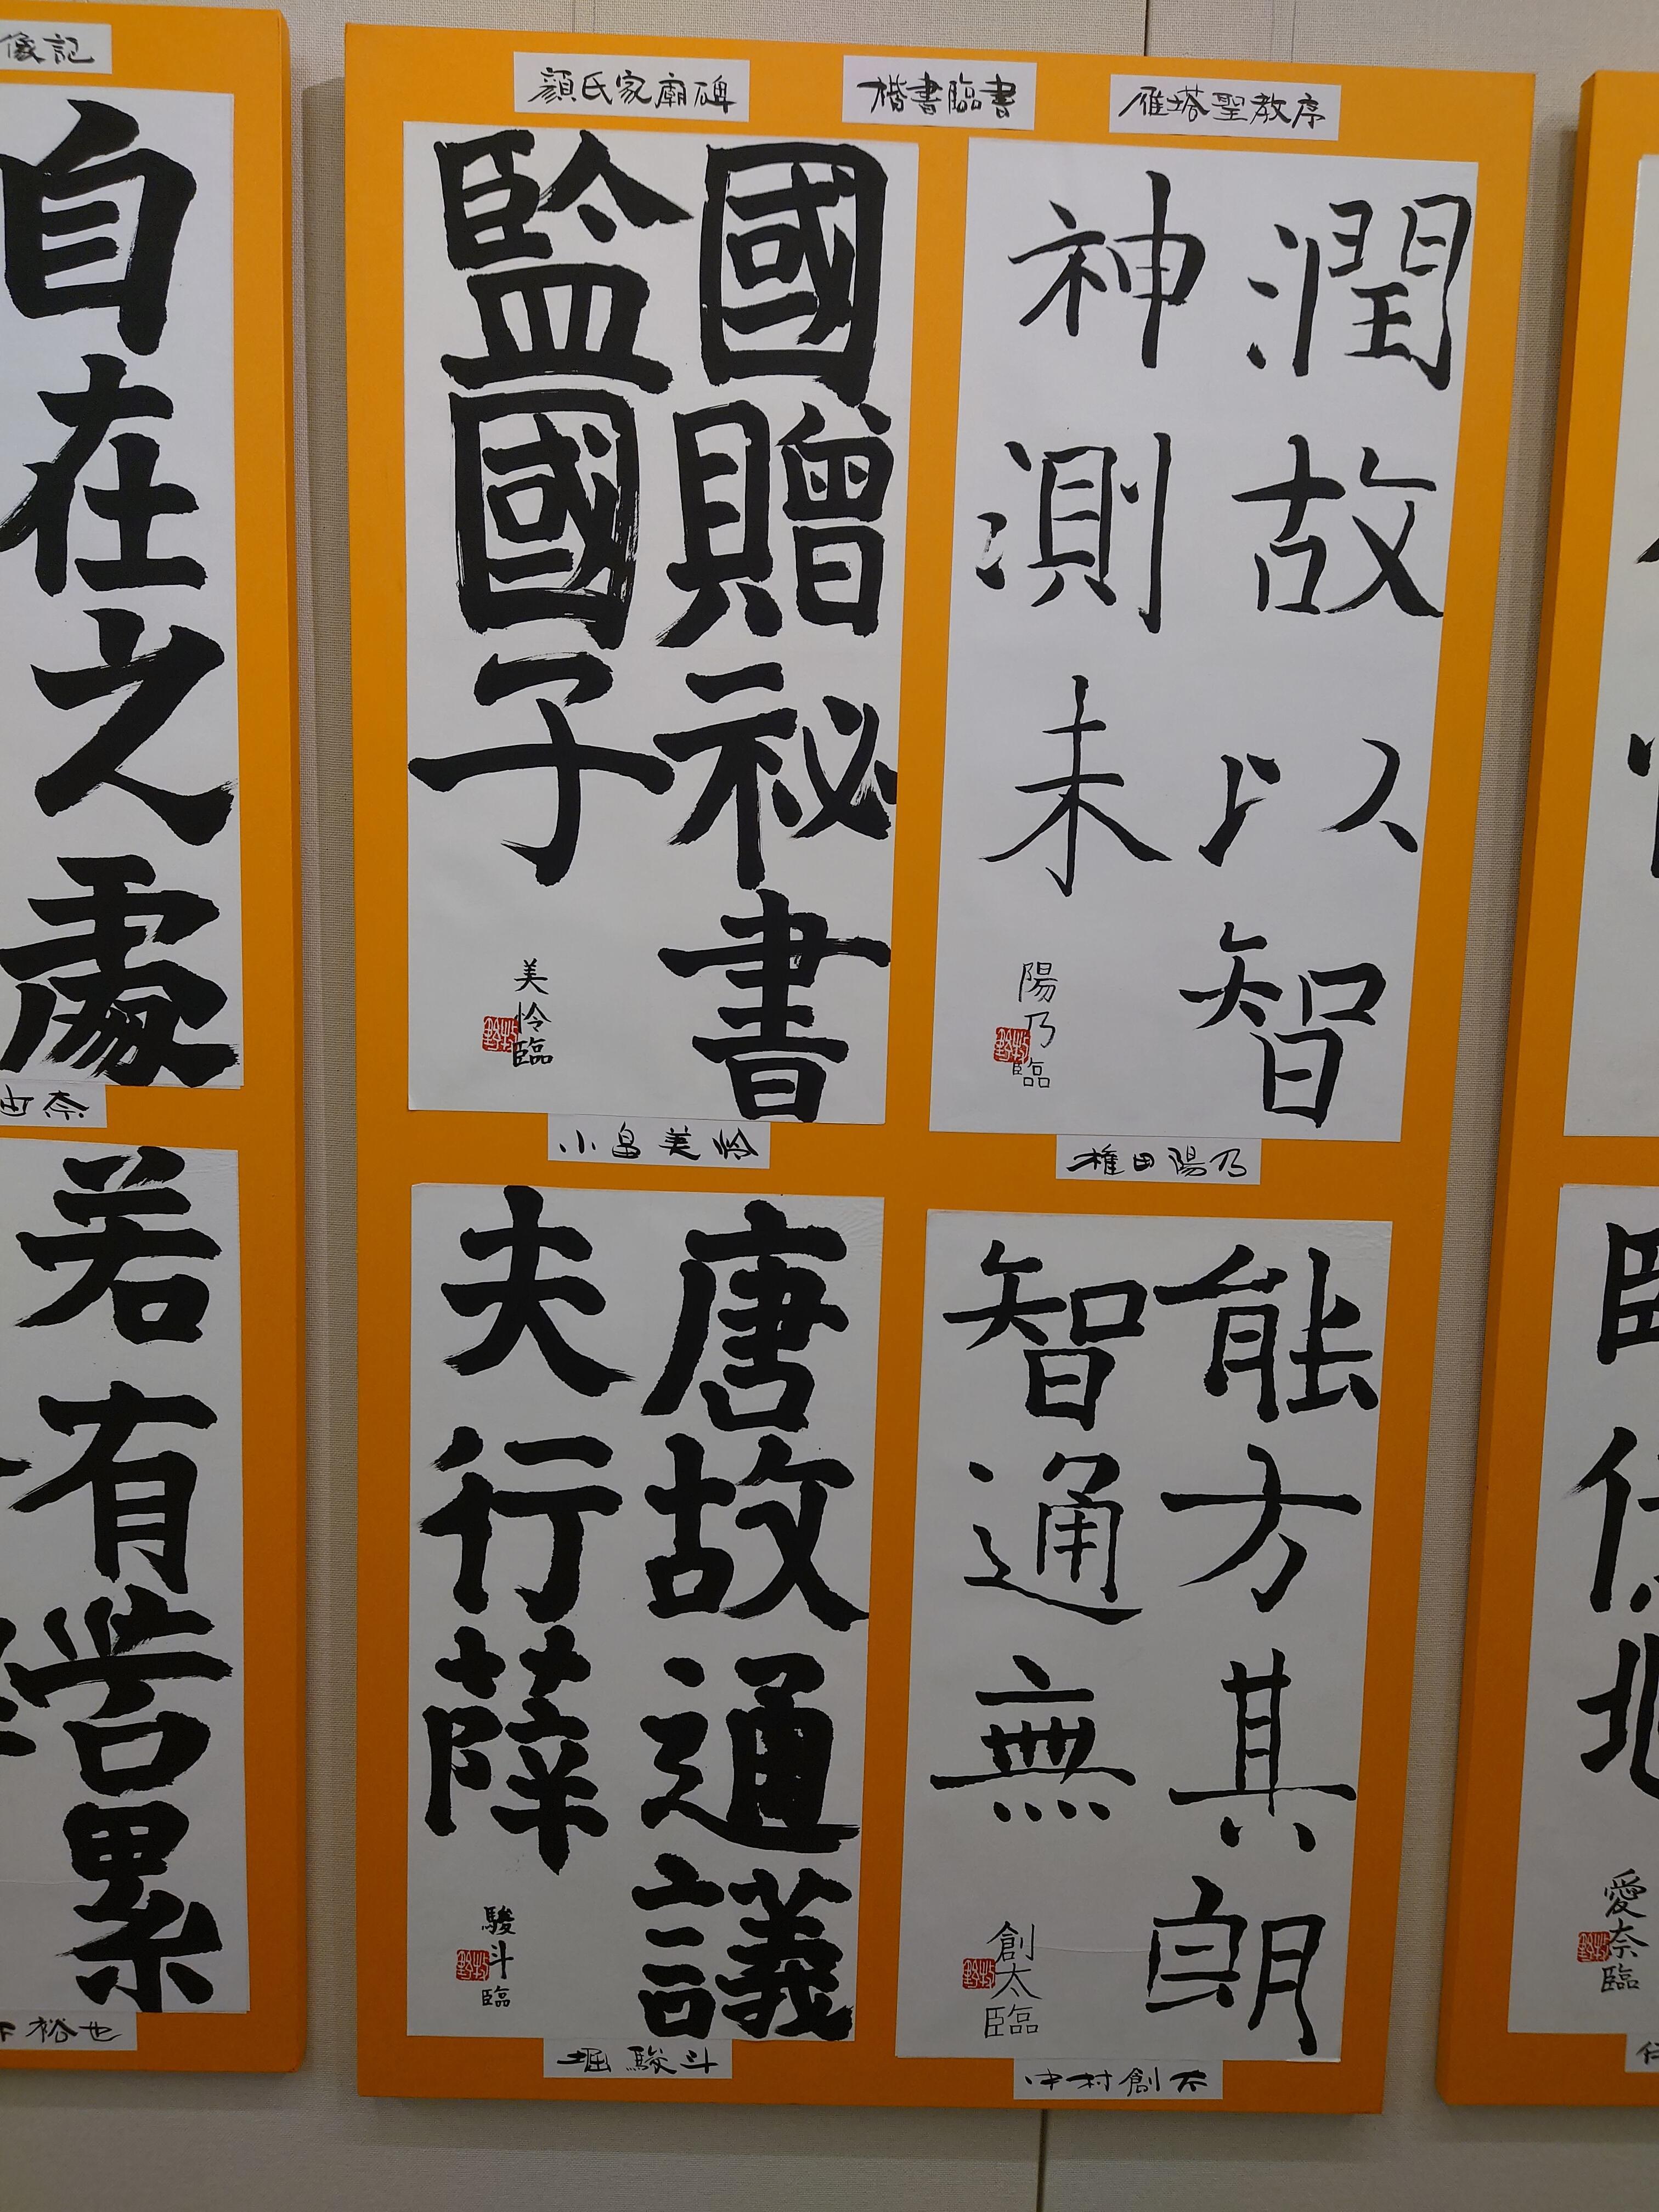 顔氏家廟碑
楷書臨書
雁塔聖教序
潤故以智
神測未
陽乃臨
國贈祕書
監國子
美怜臨
小畠美怜
権田陽乃
能方其朗
智通無
創太臨
唐故通議
夫行薛
駿斗臨
堀駿斗
中村創太
像記
自在之處
由奈
若有苦累
裕也
愛奈臨